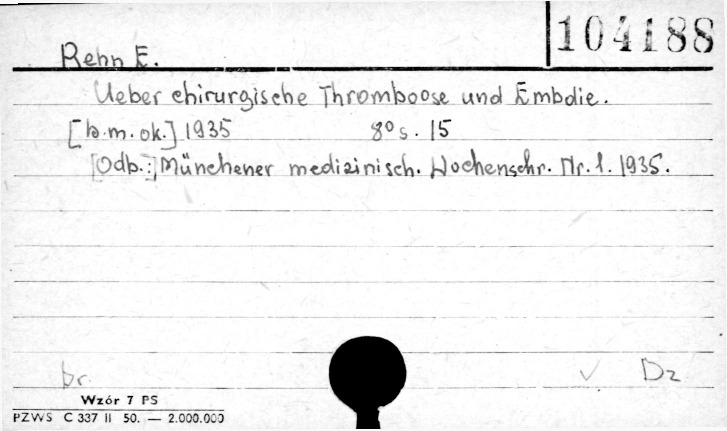 104188
Rehn E.
Ueber chirurgische Thromboose und Embolie.
[b.m.ok.] 1935 8° s. 15
[Odb.:] Münchener medizinisch. Wochenschr. Nr. 1. 1935.
br. Dz
Wzór 7 PS
PZWS C 337 II 50. — 2.000.000